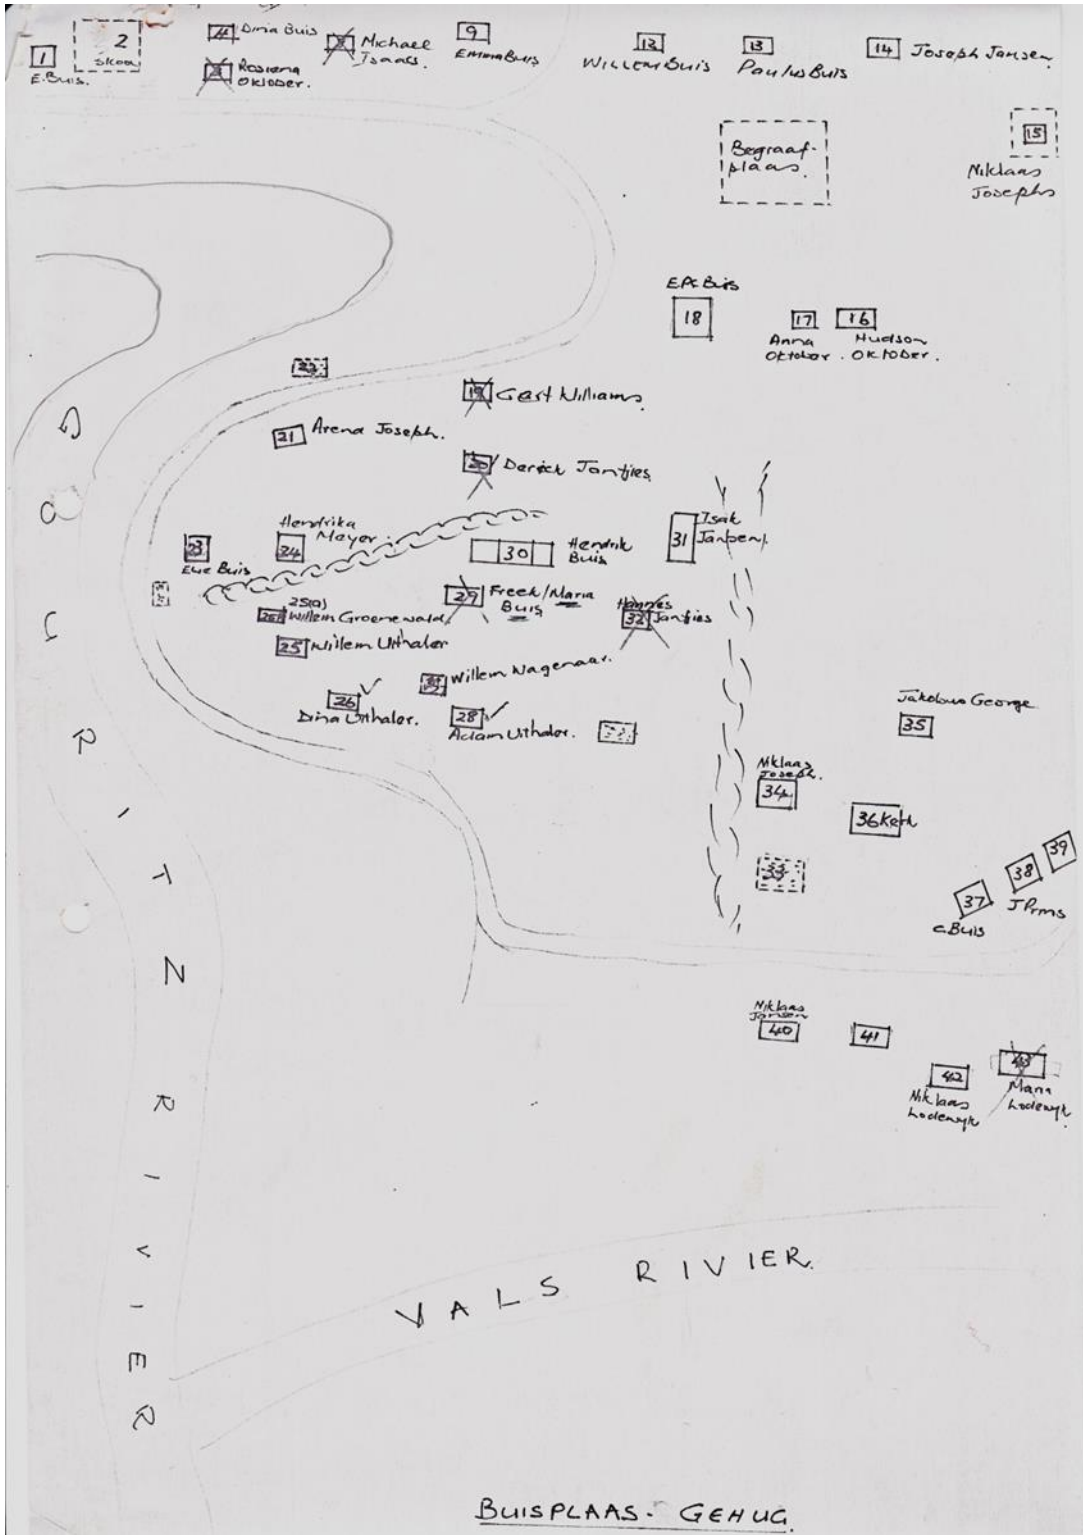 1
E. Buis.
2
Skool
4
Dina Buis
Rosiena
Oktober.
Michael
Isaacs.
9
Emma Buis
12
WILLEM BUIS
13
Paulus Buis
14 Joseph Jansen
Begraaf-
plaas.
15
Niklaas
Josephs
18
17
Anna
Oktober.
16
Hudson
OKTOBER.
19 Gert Williams.
21 Arena Joseph.
20 Derick Jantjies
23
Ewe Buis
Hendrika
Meyer.
24
30
Hendrik
Buis
31
Isak
29
Freek/Maria
Buis
25(a)
Willem Groenewald
25 Willem Uithaler
Hannes
32 Jantjies
Willem Wagenaar.
26
Dina Uithaler.
28
Adam Uithaler.
Jakobus George
35
Niklaas
Joseph.
34
36 Kerk
33
37
C. Buis
38
39
Niklaas
Jansen
40
41
42
Niklaas
Lodewyk
43
Maria
Lodewyk
GOURITZ RIVIER
VALS RIVIER.
BUISPLAAS - GEHUG